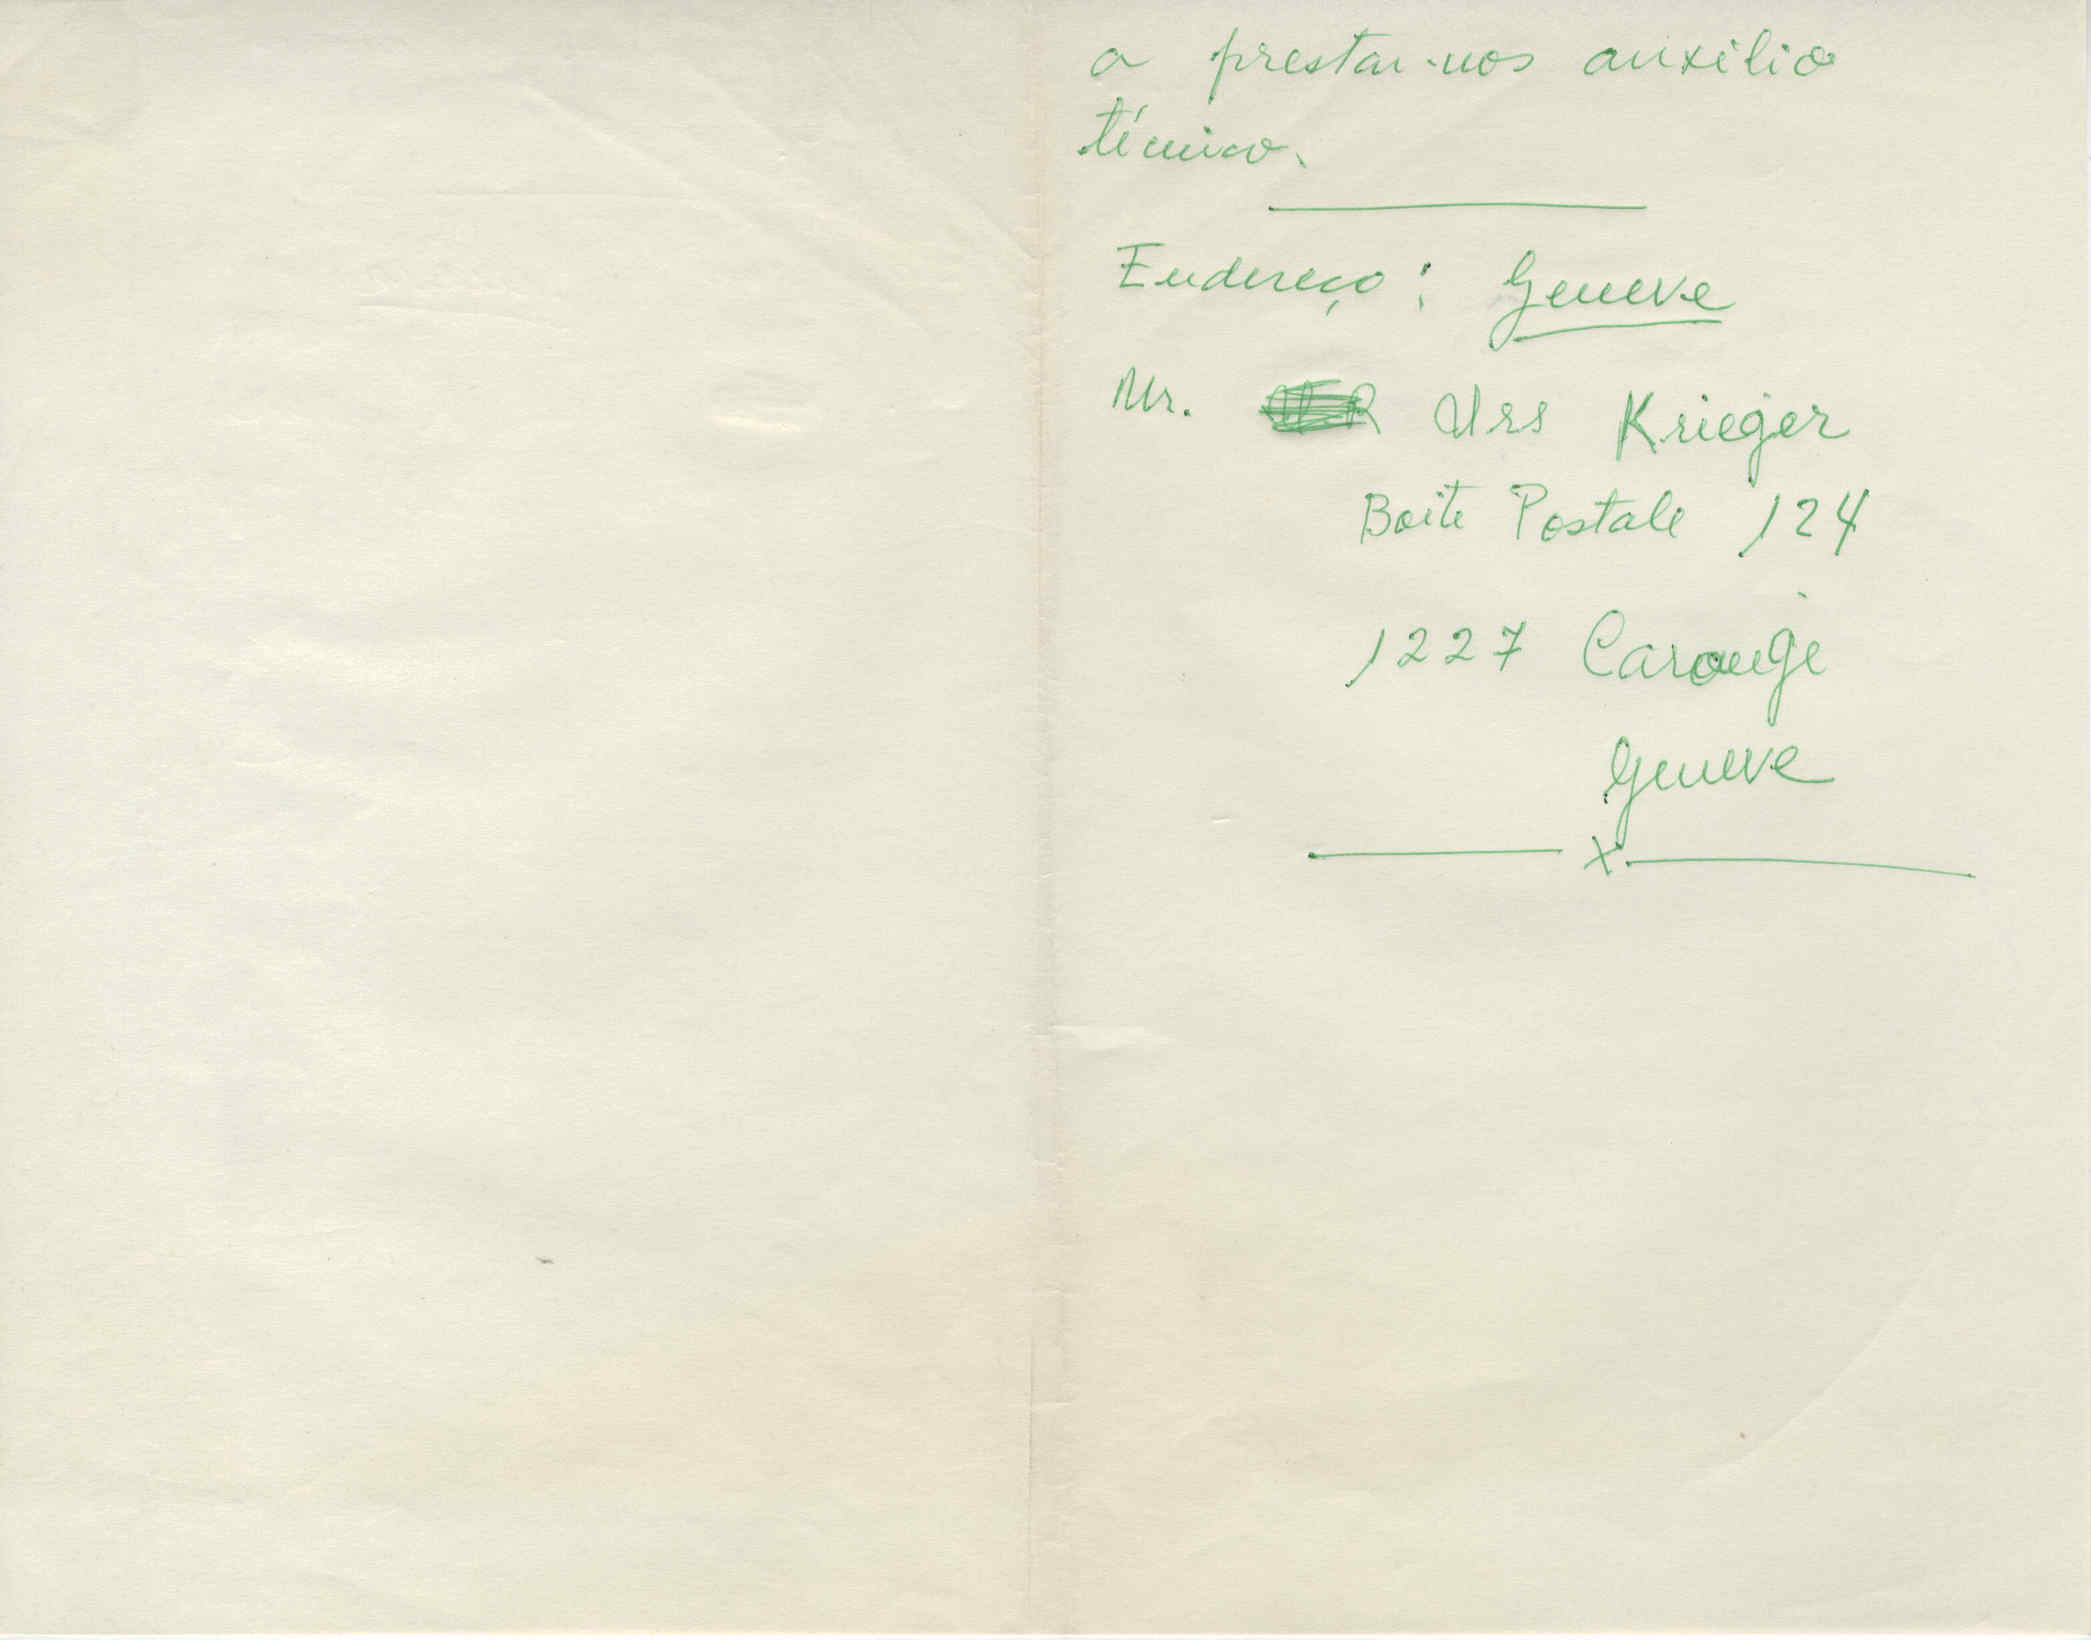 a prestar-nos auxílio
técnico.
Endereço: Geneve
Mr. Urs Krieger
Boite Postale 124
1227 Carouge
Geneve
x